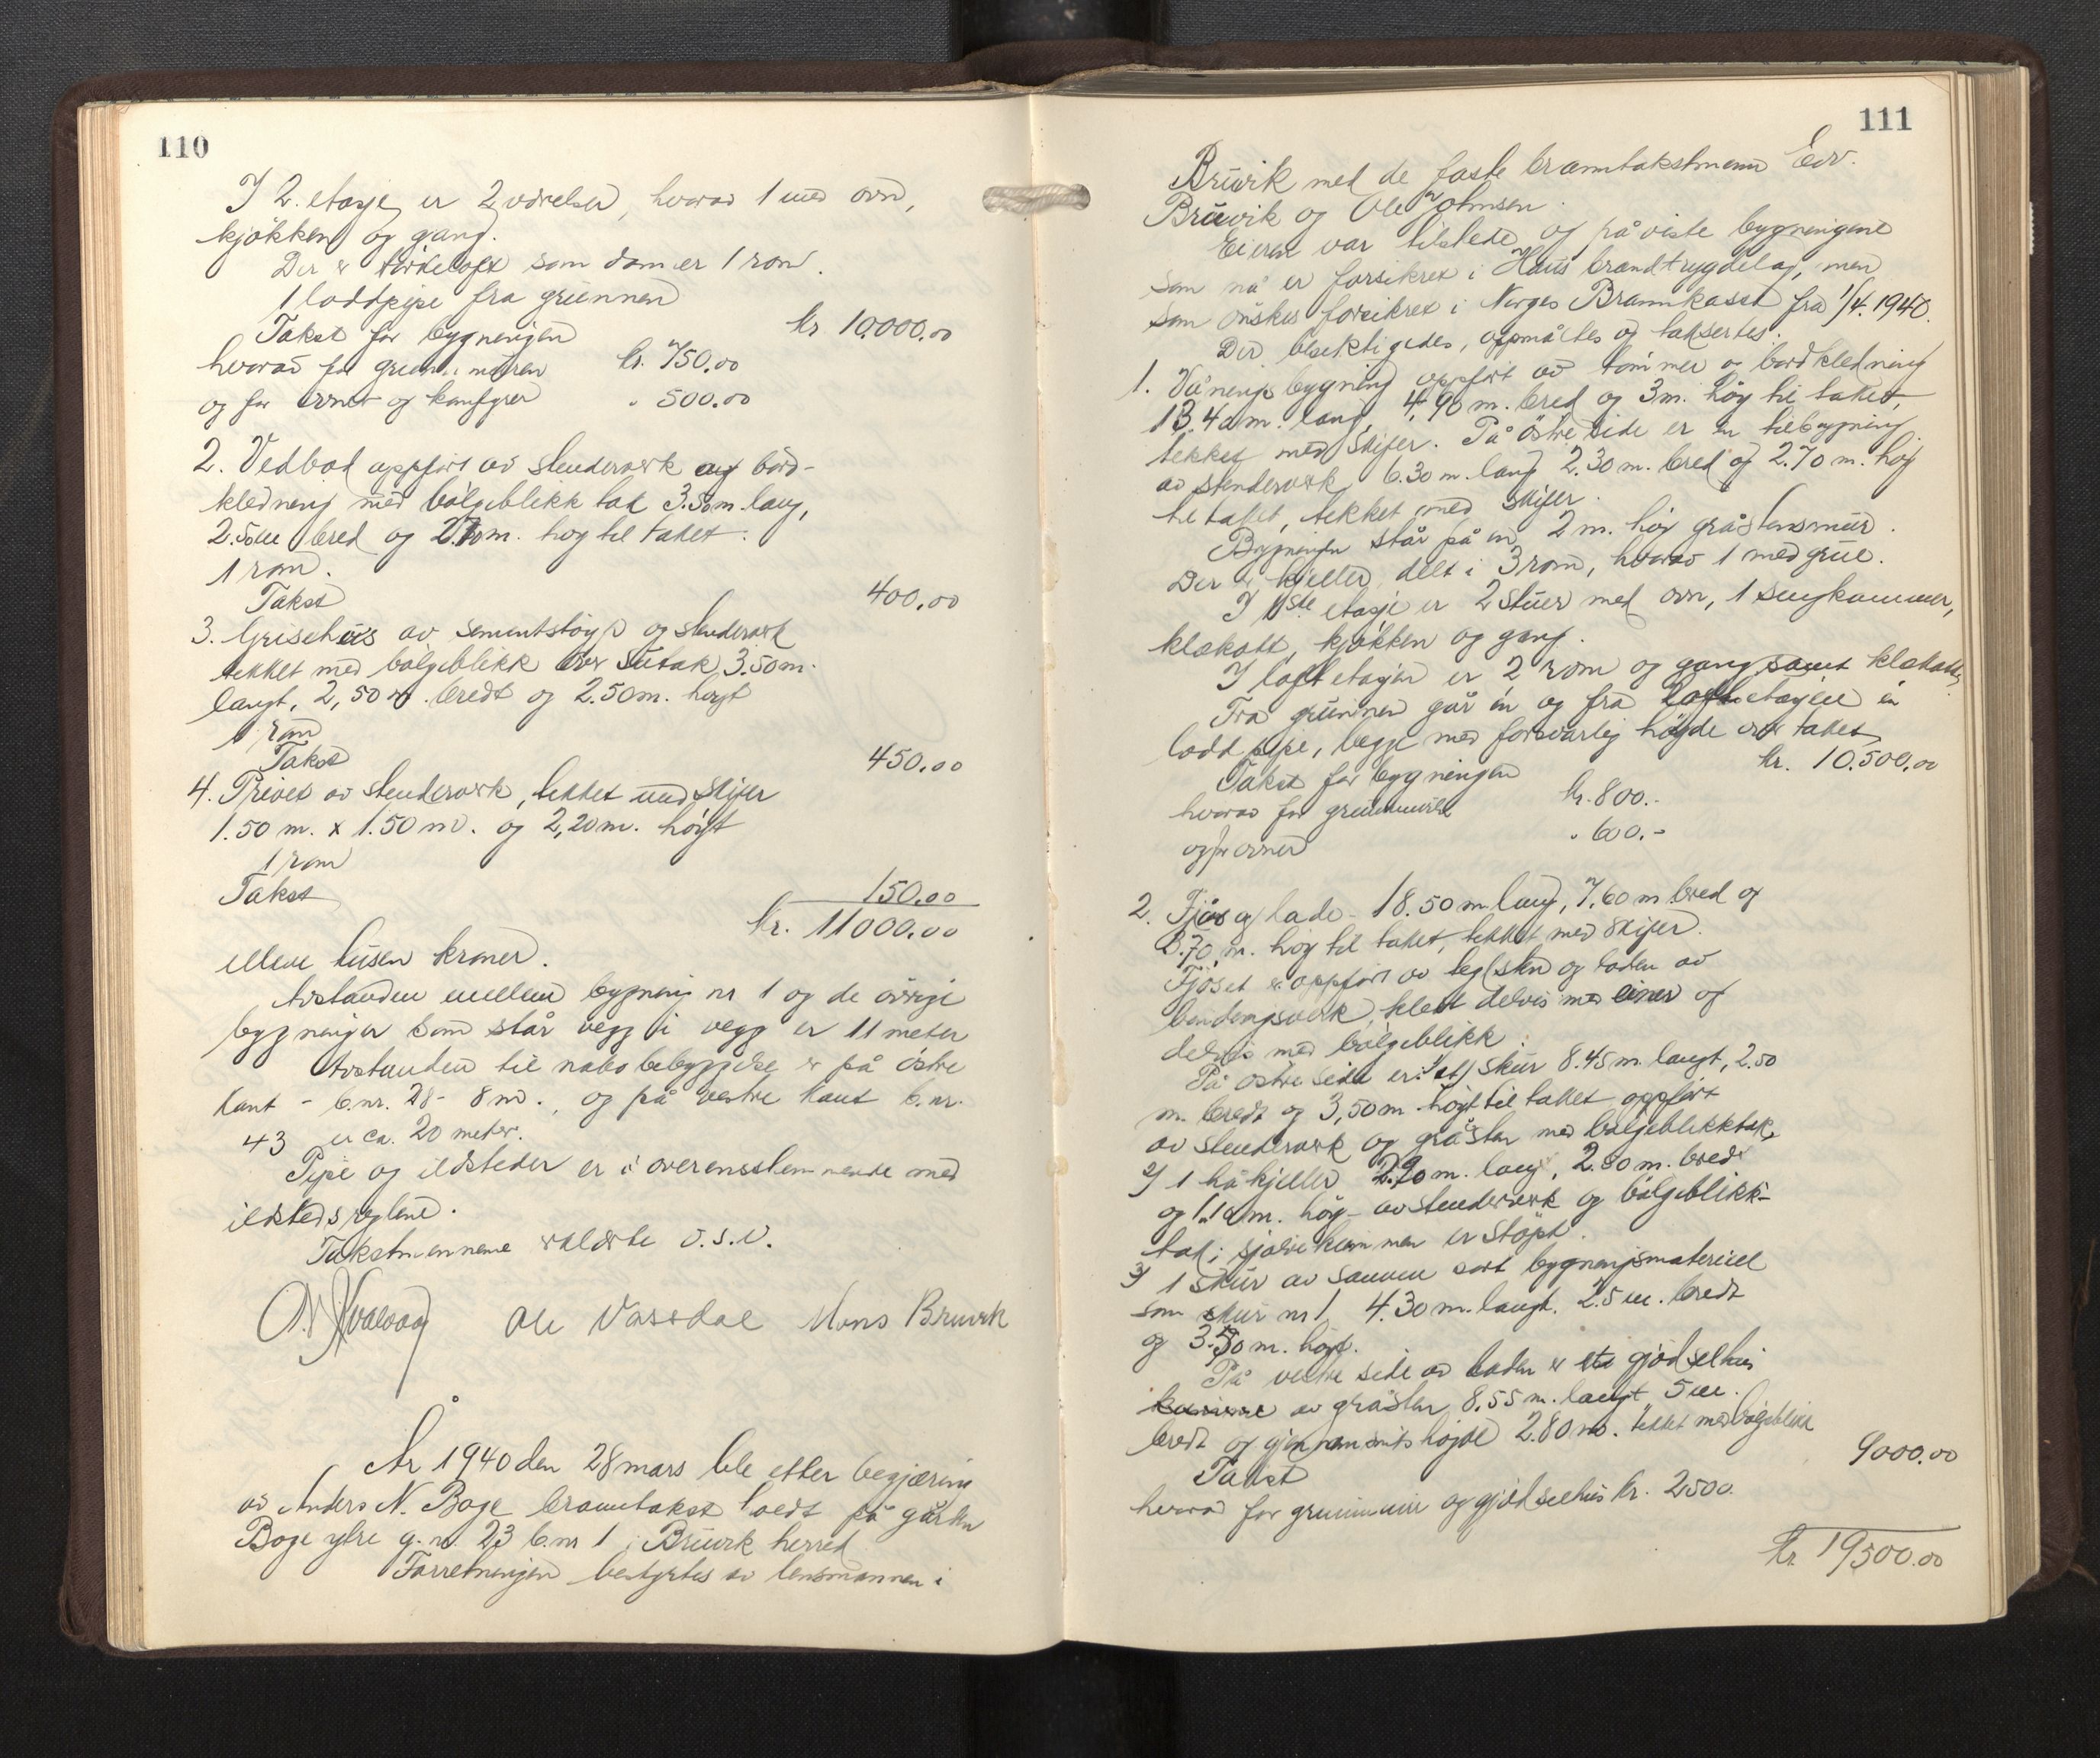 110
I 2. etasje er 2 værelser, hvorav 1 med ovn,
kjøkken og gang.
Der er tørkeloft som danner 1 rom.
1 loddpipe fra grunnen
Takst for bygningen kr 10.000.00
hvorav for grunnmuren kr. 750.00
og for ovner og komfyrer " 500.00
2. Vedbod oppført av stenderverk og bord-
kledning med bølgeblikk tak 3.50 m. lang,
2.50 m bred og 2.10 m. høg til taket.
1 rom.
Takst 400.00
3. Grisehus av sementstøyp og stenderverk
tekket med bølgeblikk over sutak 3.50 m.
langt, 2,50 m. bredt og 2.50 m. høgt
1 rom
Takst 450.00
4. Privet av stenderverk, tekket med skifer
1.50 m. x 1.50 m. og 2,20 m. høgt
1 rom
Takst 150.00
kr. 11000.00
elleve tusen kroner.
Avstanden mellem bygning nr 1 og de øvrige
bygninger som står vegg i vegg er 11 meter
Avstanden til nabobebyggelse er på østre
kant - b.nr. 28 - 8 m., og på vestre kant b.nr.
43 er ca. 20 meter.
Pipe og ildsteder er i overensstemmende med
ildstedsreglene.
Takstmennene erklærte o.s.v.
Ole Vassdal Mons Bruvik
År 1940 den 28 mars ble etter begjæring
av Anders N. Boge branntakst holdt på garden
Boge ytre g.nr. 23 b.nr 1 i Bruvik herred
Forretningen bestyrtes av lensmannen i
111
Bruvik med de faste branntakstmenn Edv.
Bruvik og Ole Johnsen.
Eieren var tilstede og påviste bygningene
som nå er forsikret i Haus brandtrygdelag, men
som ønskes forsikret i Norges Brannkasse fra 1/4. 1940.
Der besiktigedes, oppmåltes og taksertes:
1. Våningsbygning oppført av tømmer og bordkledning
13.40 m. lang, 4,90 m. bred og 3 m. høg til taket,
tekket med skifer. På østre side er en tilbygning
av stenderverk 6.30 m. lang 2.30 m. bred og 2.70 m. høg
til taket, tekket med skifer.
Bygningen står på en 2 m. høg gråstensmur.
Der er kjeller delt i 3 rom, hvorav 1 med grue.
I 1ste etasje er 2 stuer med ovn, 1 sengkammer,
klekott, kjøkken og gang.
I loftetasjen er 2 rom og gang samt klekott.
Fra grunnen går en og fra loftetasjen en
loddpipe, begge med forsvarlig høgde over taket
Takst for bygningen kr. 10.500,00
hvorav for grunnmuren kr. 800.-
og for ovner " 600.-
2. Fjøs og lade - 18.50 m. lang, 7,60 m bred og
3.70 m. høg til taket, tekket med skifer.
Fjøset er oppført av teglsten og laden av
bendingsverk, kledt delvis med einer og
delvis med bølgeblikk.
På østre side er: 1) et skur 8.45 m. langt, 2.50
m. bredt og 3,50 m. høgt til taket oppført
av stenderverk og gråsten med bølgeblikktak.
2) 1 håkjeller 2.90 m. lang, 2.80 m. bred
og 1.10 m. høg - av stenderverk og bølgeblikk-
tak; sjølve kummen er støpt.
3) 1 skur av samme sort bygningsmateriell
som skur nr 1 4.30 m. langt. 2.5 m. bredt
og 3.50 m. høgt.
På vestre side av laden er et gjødselhus
av gråsten 8.55 m. langt 5 m.
bredt og gjennomsnitshøgde 2.80 m. tekket med bølgeblikk
Takst 9000.00
hvorav for grunnmur og gjødselhus kr. 2500.
kr. 19500.00